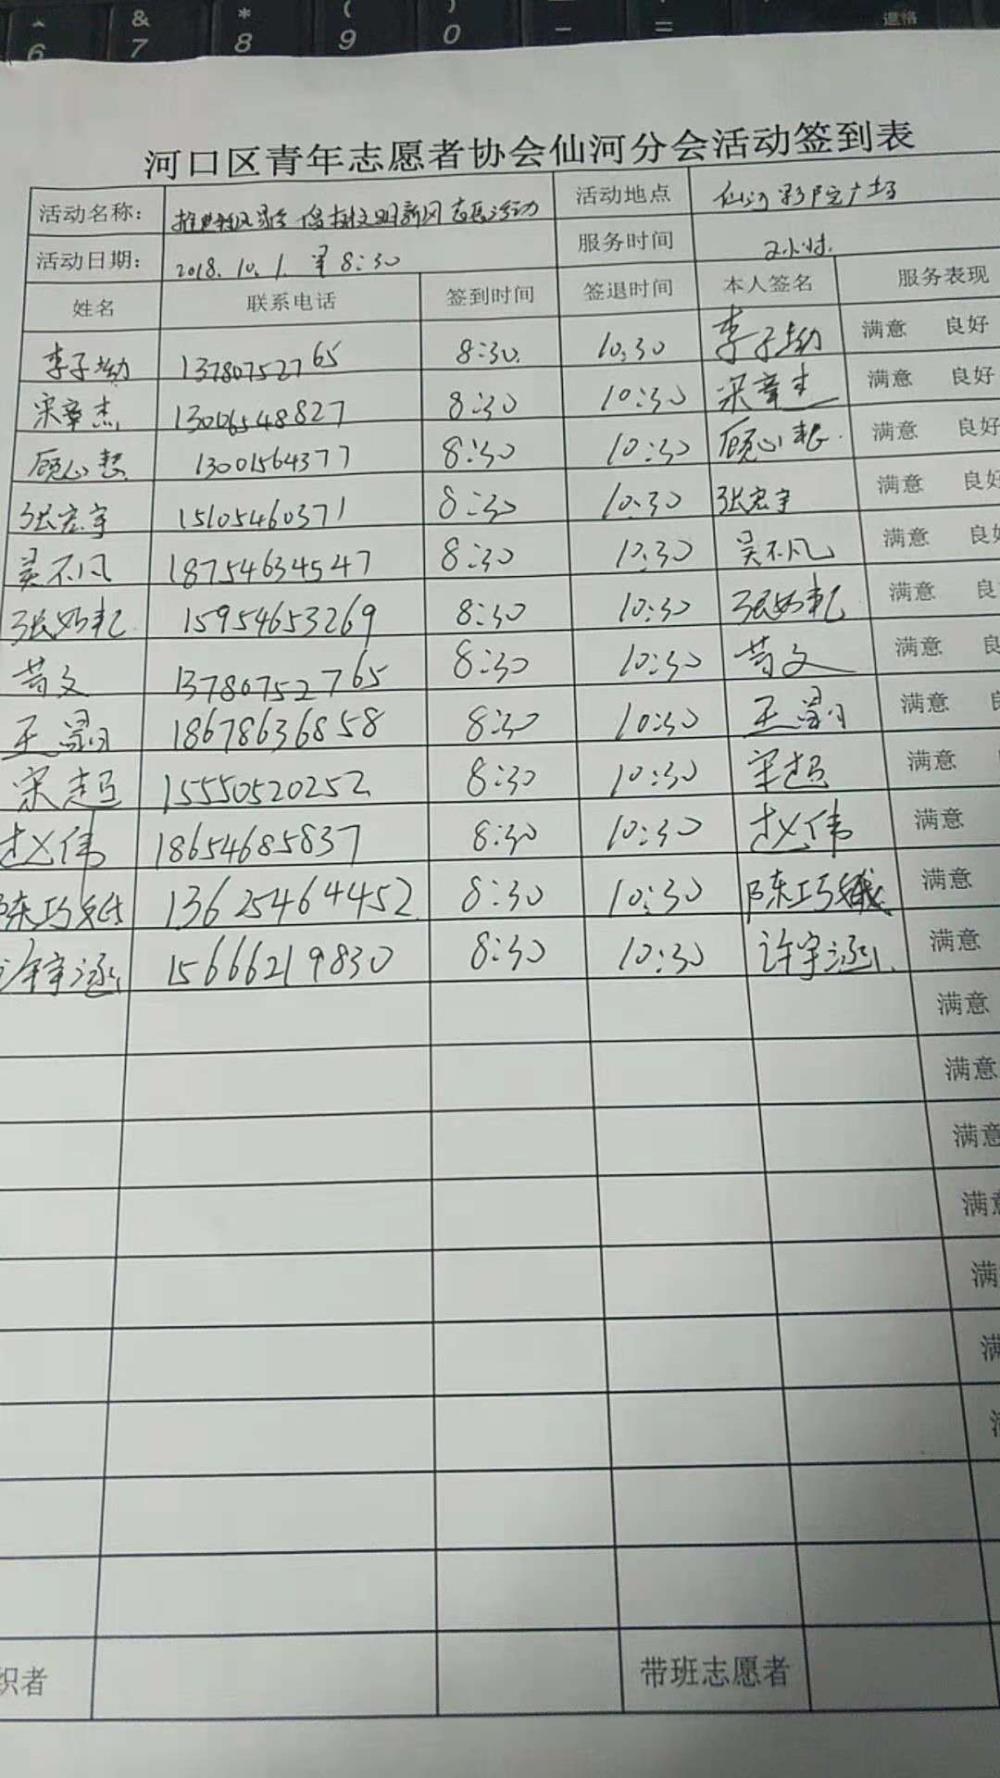 ^ & * ( )
6 7 8 9 0 — =
退格
河口区青年志愿者协会仙河分会活动签到表
活动名称： 文明新风志愿活动 活动地点 仙河影院广场
活动日期： 2018.10.1. 早8:30 服务时间 2小时.
姓名 联系电话 签到时间 签退时间 本人签名 服务表现
李子坳 13780752765 8:30. 10:30 李子坳 满意 良好
宋章杰 13006548827 8:30 10:30 宋章杰 满意 良好
顾心懿 13001564377 8:30 10:30 顾心懿 满意 良好
张宏宇 15105460371 8:30 10:30 张宏宇 满意 良好
吴不凡 18754634547 8:30 10:30 吴不凡 满意 良好
张 15954653269 8:30 10:30 张 满意 良
苗文 13780752765 8:30 10:30 苗文 满意 良
王 18678636858 8:30 10:30 王 满意
宋超 15550520252 8:30 10:30 宋超 满意
赵伟 18654685837 8:30 10:30 赵伟 满意
陈巧 13625464452 8:30 10:30 陈巧 满意
许宇涵 15666219830 8:30 10:30 许宇涵 满意
满意
满意
满意
满意
满
满
满
织者 带班志愿者